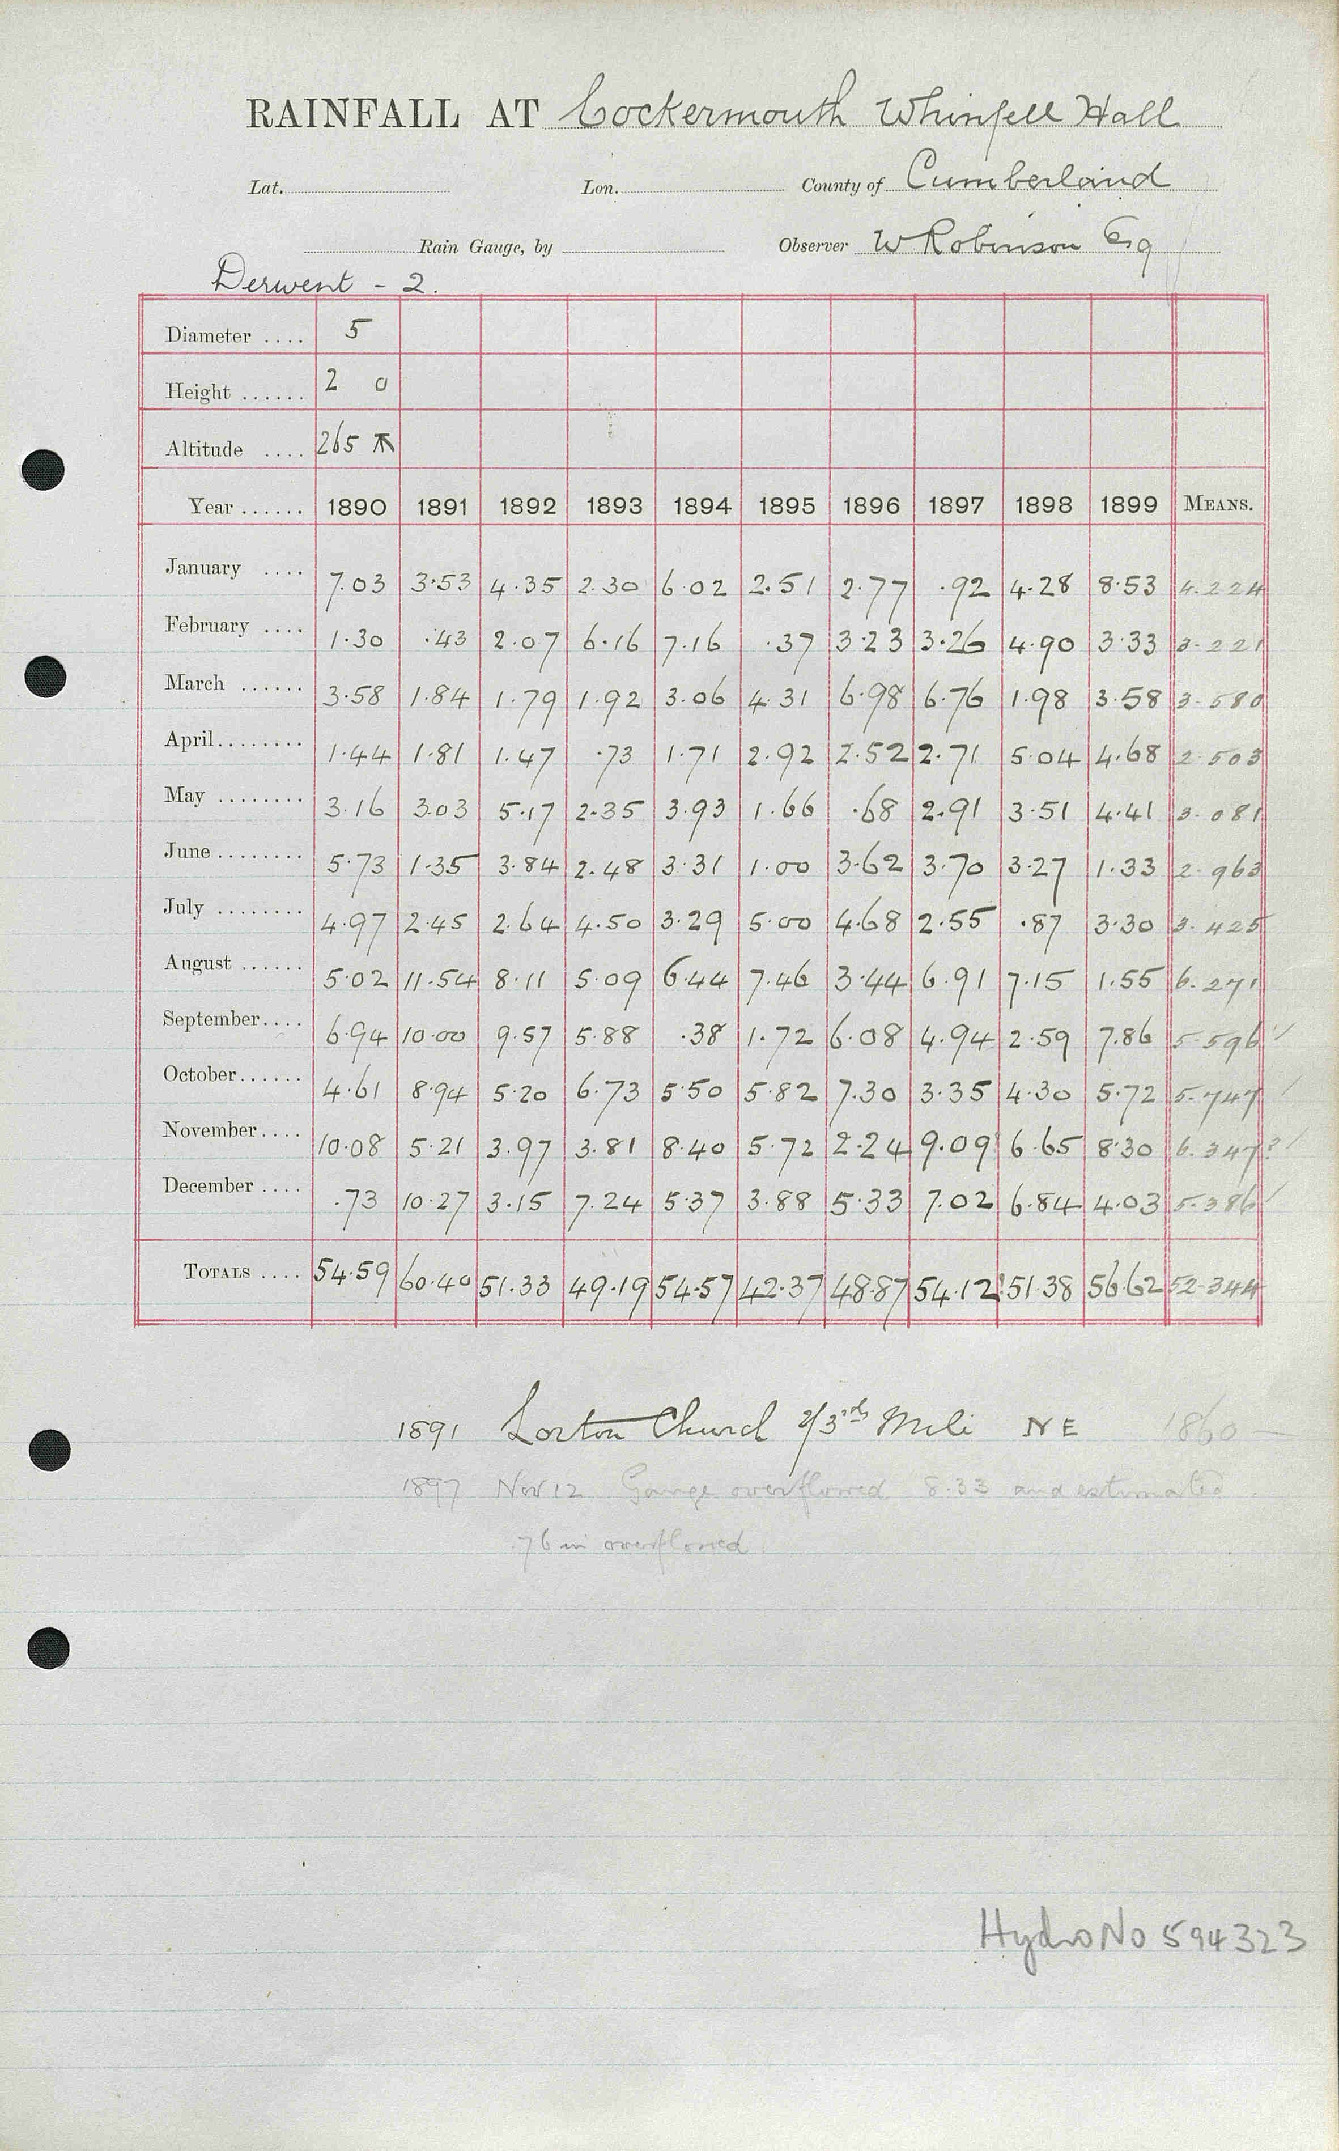 RAINFALL AT Cockermouth Whinfell Hall
Lat. Lon. County of Cumberland
Rain Gauge, by Observer W Robinson Esq
Derwent - 2.
Diameter .... 5
Height ...... 2 0
Altitude .... 265
Year ...... 1890 1891 1892 1893 1894 1895 1896 1897 1898 1899 MEANS.
January .... 7.03 3.53 4.35 2.30 6.02 2.51 2.77 .92 4.28 8.53 4.224
February .... 1.30 .43 2.07 6.16 7.16 .37 3.23 3.26 4.90 3.33 3.221
March ...... 3.58 1.84 1.79 1.92 3.06 4.31 6.98 6.76 1.98 3.58 3.580
April........ 1.44 1.81 1.47 .73 1.71 2.92 2.52 2.71 5.04 4.68 2.503
May ........ 3.16 3.03 5.17 2.35 3.93 1.66 .68 2.91 3.51 4.41 3.081
June ........ 5.73 1.35 3.84 2.48 3.31 1.00 3.62 3.70 3.27 1.33 2.963
July ........ 4.97 2.45 2.64 4.50 3.29 5.00 4.68 2.55 .87 3.30 3.425
August ...... 5.02 11.54 8.11 5.09 6.44 7.46 3.44 6.91 7.15 1.55 6.271
September.... 6.94 10.00 9.57 5.88 .38 1.72 6.08 4.94 2.59 7.86 5.596
October...... 4.61 8.94 5.20 6.73 5.50 5.82 7.30 3.35 4.30 5.72 5.747
November.... 10.08 5.21 3.97 3.81 8.40 5.72 2.24 9.09 6.65 8.30 6.347?
December .... .73 10.27 3.15 7.24 5.37 3.88 5.33 7.02 6.84 4.03 5.386
TOTALS .... 54.59 60.40 51.33 49.19 54.57 42.37 48.87 54.12 51.38 56.62 52.344
1891 Lorton Church 2/3rds Mile NE 1860 —
1897 Nov 12 Gauge overflowed 8.33 and estimated
.76 in overflowed
Hydro No 594323